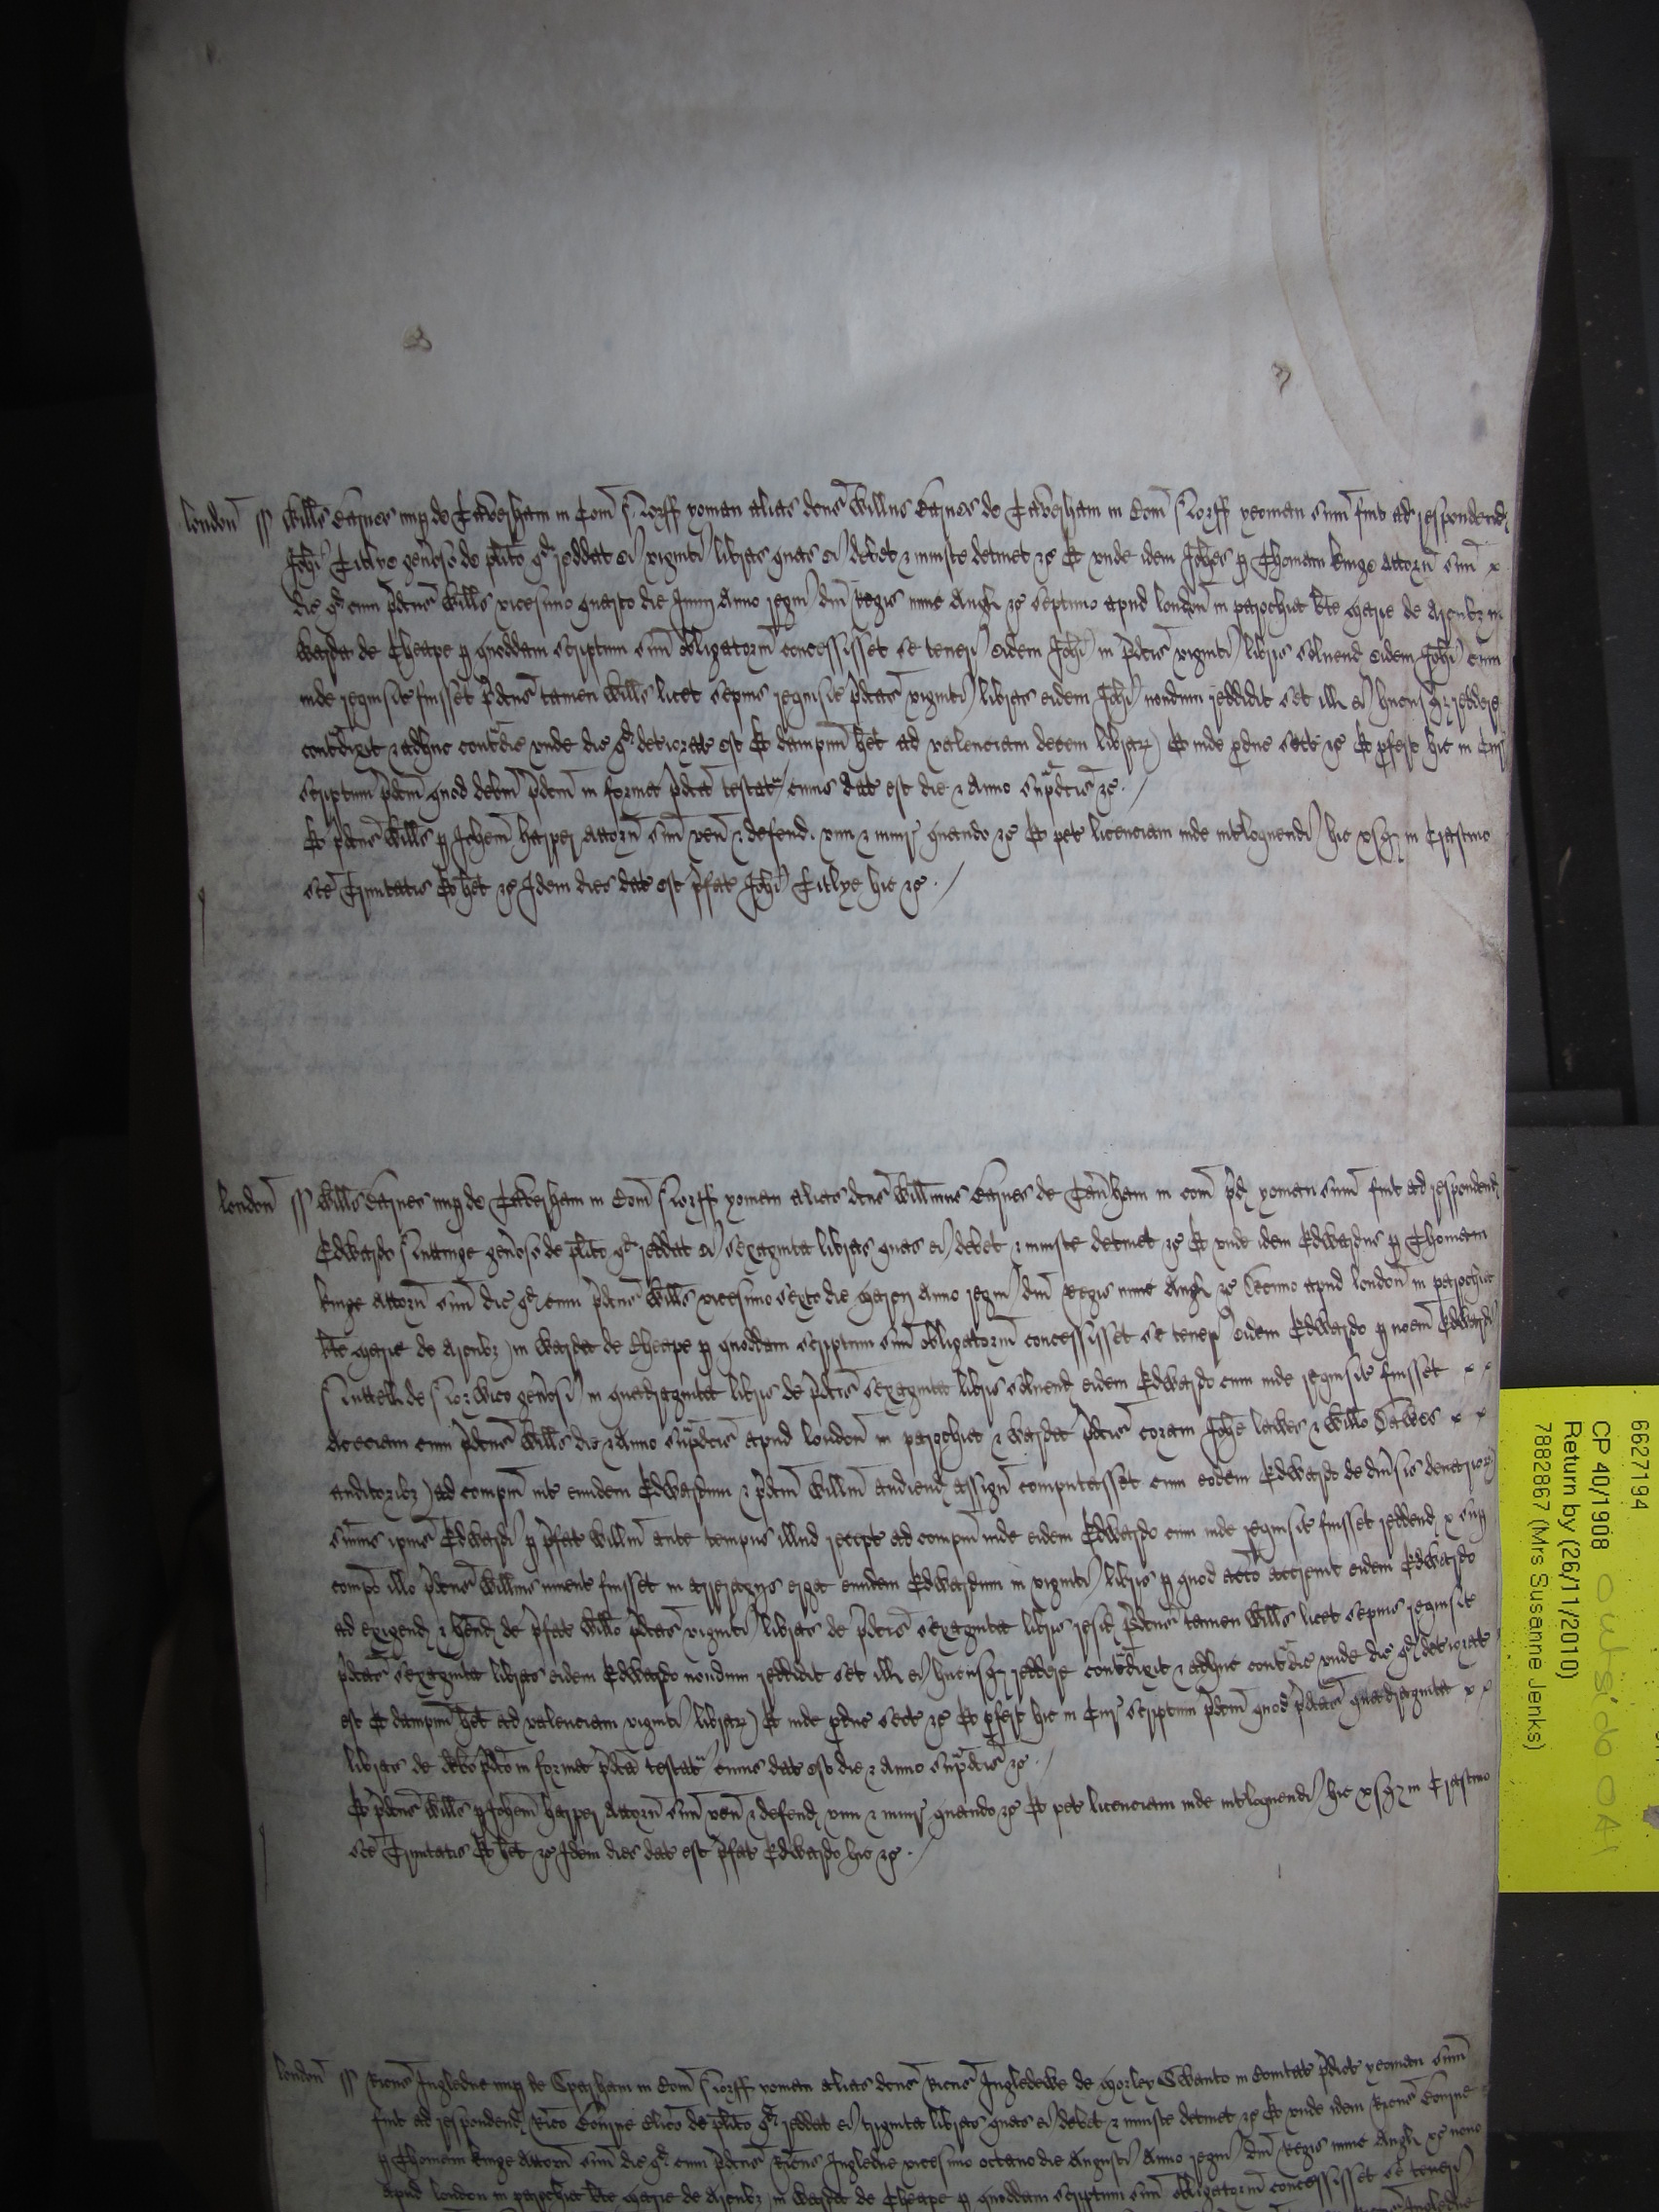 london ss Wills Earnes nup de Caversham in Com Norff yoman alias dcus Willms Earnes de Caversham in Com Norff yeoman sum fuit ad respondend
Johi generoso de plito qd reddat ei viginti libras quas ei debet & iniuste detinet &c Et unde idem Johes p Thomam kinge Attorn suu x
dic qd cum pdcus Wills vicesimo quarto die Junij Anno regni dni Regis nunc Angl &c septimo apud london in parochia bte marie de Arcubz in
Warda de Cheape p quoddam scriptum suu obligatoriu concessisset se teneri eidem Johi in pdcis viginti libris solvend eidem Johi cum
inde requisit fuisset pdcus tamen Wills licet sepius requisit pdcas viginti libras eidem Johi nondum reddidit set ill ei hucusqz reddere
contdixit & adhuc contdic unde dic qd deteriorat est Et dampnu het ad valenciam decem librarz Et inde pduc sect &c Et pfert hic in Cur
scriptum pdcm quod debm pdcm in forma pdca testat cuius dat est die & Anno supdcis &c
Et pdcus Wills p Johem harper Attorn suu ven & defend vim & iniur quando &c Et pet licenciam inde intloquendi hic usqz in Crastino
sce Trinitatis Et het &c Idem dies dat est pfat Johi hic &c
london ss Wills Earnes nup de Caversham in Com Norff yoman alias dcus Willimus Earnes de Cavham in com pd yoman sum fuit ad respondend
Edwardo generoso de plito qd reddat ei sexaginta libras quas ei debet & iniuste detinet &c Et unde idem Edwardus p Thomam
kinge Attorn suu dic qd cum pdcus Wills vicesimo sexto die marcij Anno regni dni Regis nunc Angl &c decimo apud london in parochia
bte marie de Arcubz in warda de Cheape p quoddam scriptum suu obligatoriu concessisset se teneri eidem Edwardo p noem Edwardi
de Norwico generosi in quadraginta libris de pdcis sexaginta libris solvend eidem Edwardo cum inde requisit fuisset x x
Aceciam cum pdcus Wills die & Anno supdcis apud london in parochia & warda pdcis coram Johe lawes & Willo Dawes x x
auditoribz ad compm int eundem Edwardum & pdcm Willm audiend assign computasset cum eodem Edwardo de divsis denariorz
summis ipius Edwardi p pfat Willm ante tempus illud recept ad compm inde eidem Edwardo cum inde requisit fuisset reddend x sup
compo illo pdcus Willimus invent fuisset in arreragijs erga eundem Edwardum in viginti libris p quod acco accrevit eidem Edwardo
ad exigend & hend de pfat Willo pdcas viginti libras de pdcis sexaginta libris resid pdcus tamen Wills licet sepius requisit
pdcas sexaginta libras eidem Edwardo nondum reddidit set ill ei hucusqz reddere contdixit & adhuc contdic unde dic qd deteriorat
est Et dampnu het ad valenciam viginti librarz Et inde pduc sect &c Et pfert hic in Cur scriptum pdcm quod pdcas quadraginta x x
libras de debo pdco in forma pdca testat cuius dat est die & Anno supdcis &c
Et pdcus Wills p Johem harper Attorn suu ven & defend vim & iniur quando &c Et pet licenciam inde intloquendi hic usqz in Crastino
sce Trinitatis Et het &c Idem dies dat est pfat Edwardo hic &c
london ss Ricus Ingledue nup de Sparham in Com Norff yoman alias dcus Ricus Ingledewe de morley Swanto in Comitat pdict yeoman sum
fuit ad respondend Rico clico de plito qd reddat ei triginta libras quas ei debet & iniuste detinet &c Et unde idem Ricus
p Thomam kinge Attorn suu dic qd cum pdcus Ricus Ingledue vicesimo octavo die Augusti Anno regni dni Regis nunc Angl &c nono
apud london in parochia bte marie de Arcubz in warda de Cheape p quoddam scriptum suu obligatoriu concessisset se teneri
6627194
CP 40/1908
Return by (26/11/2010)
7882867 (Mrs Susanne Jenks)